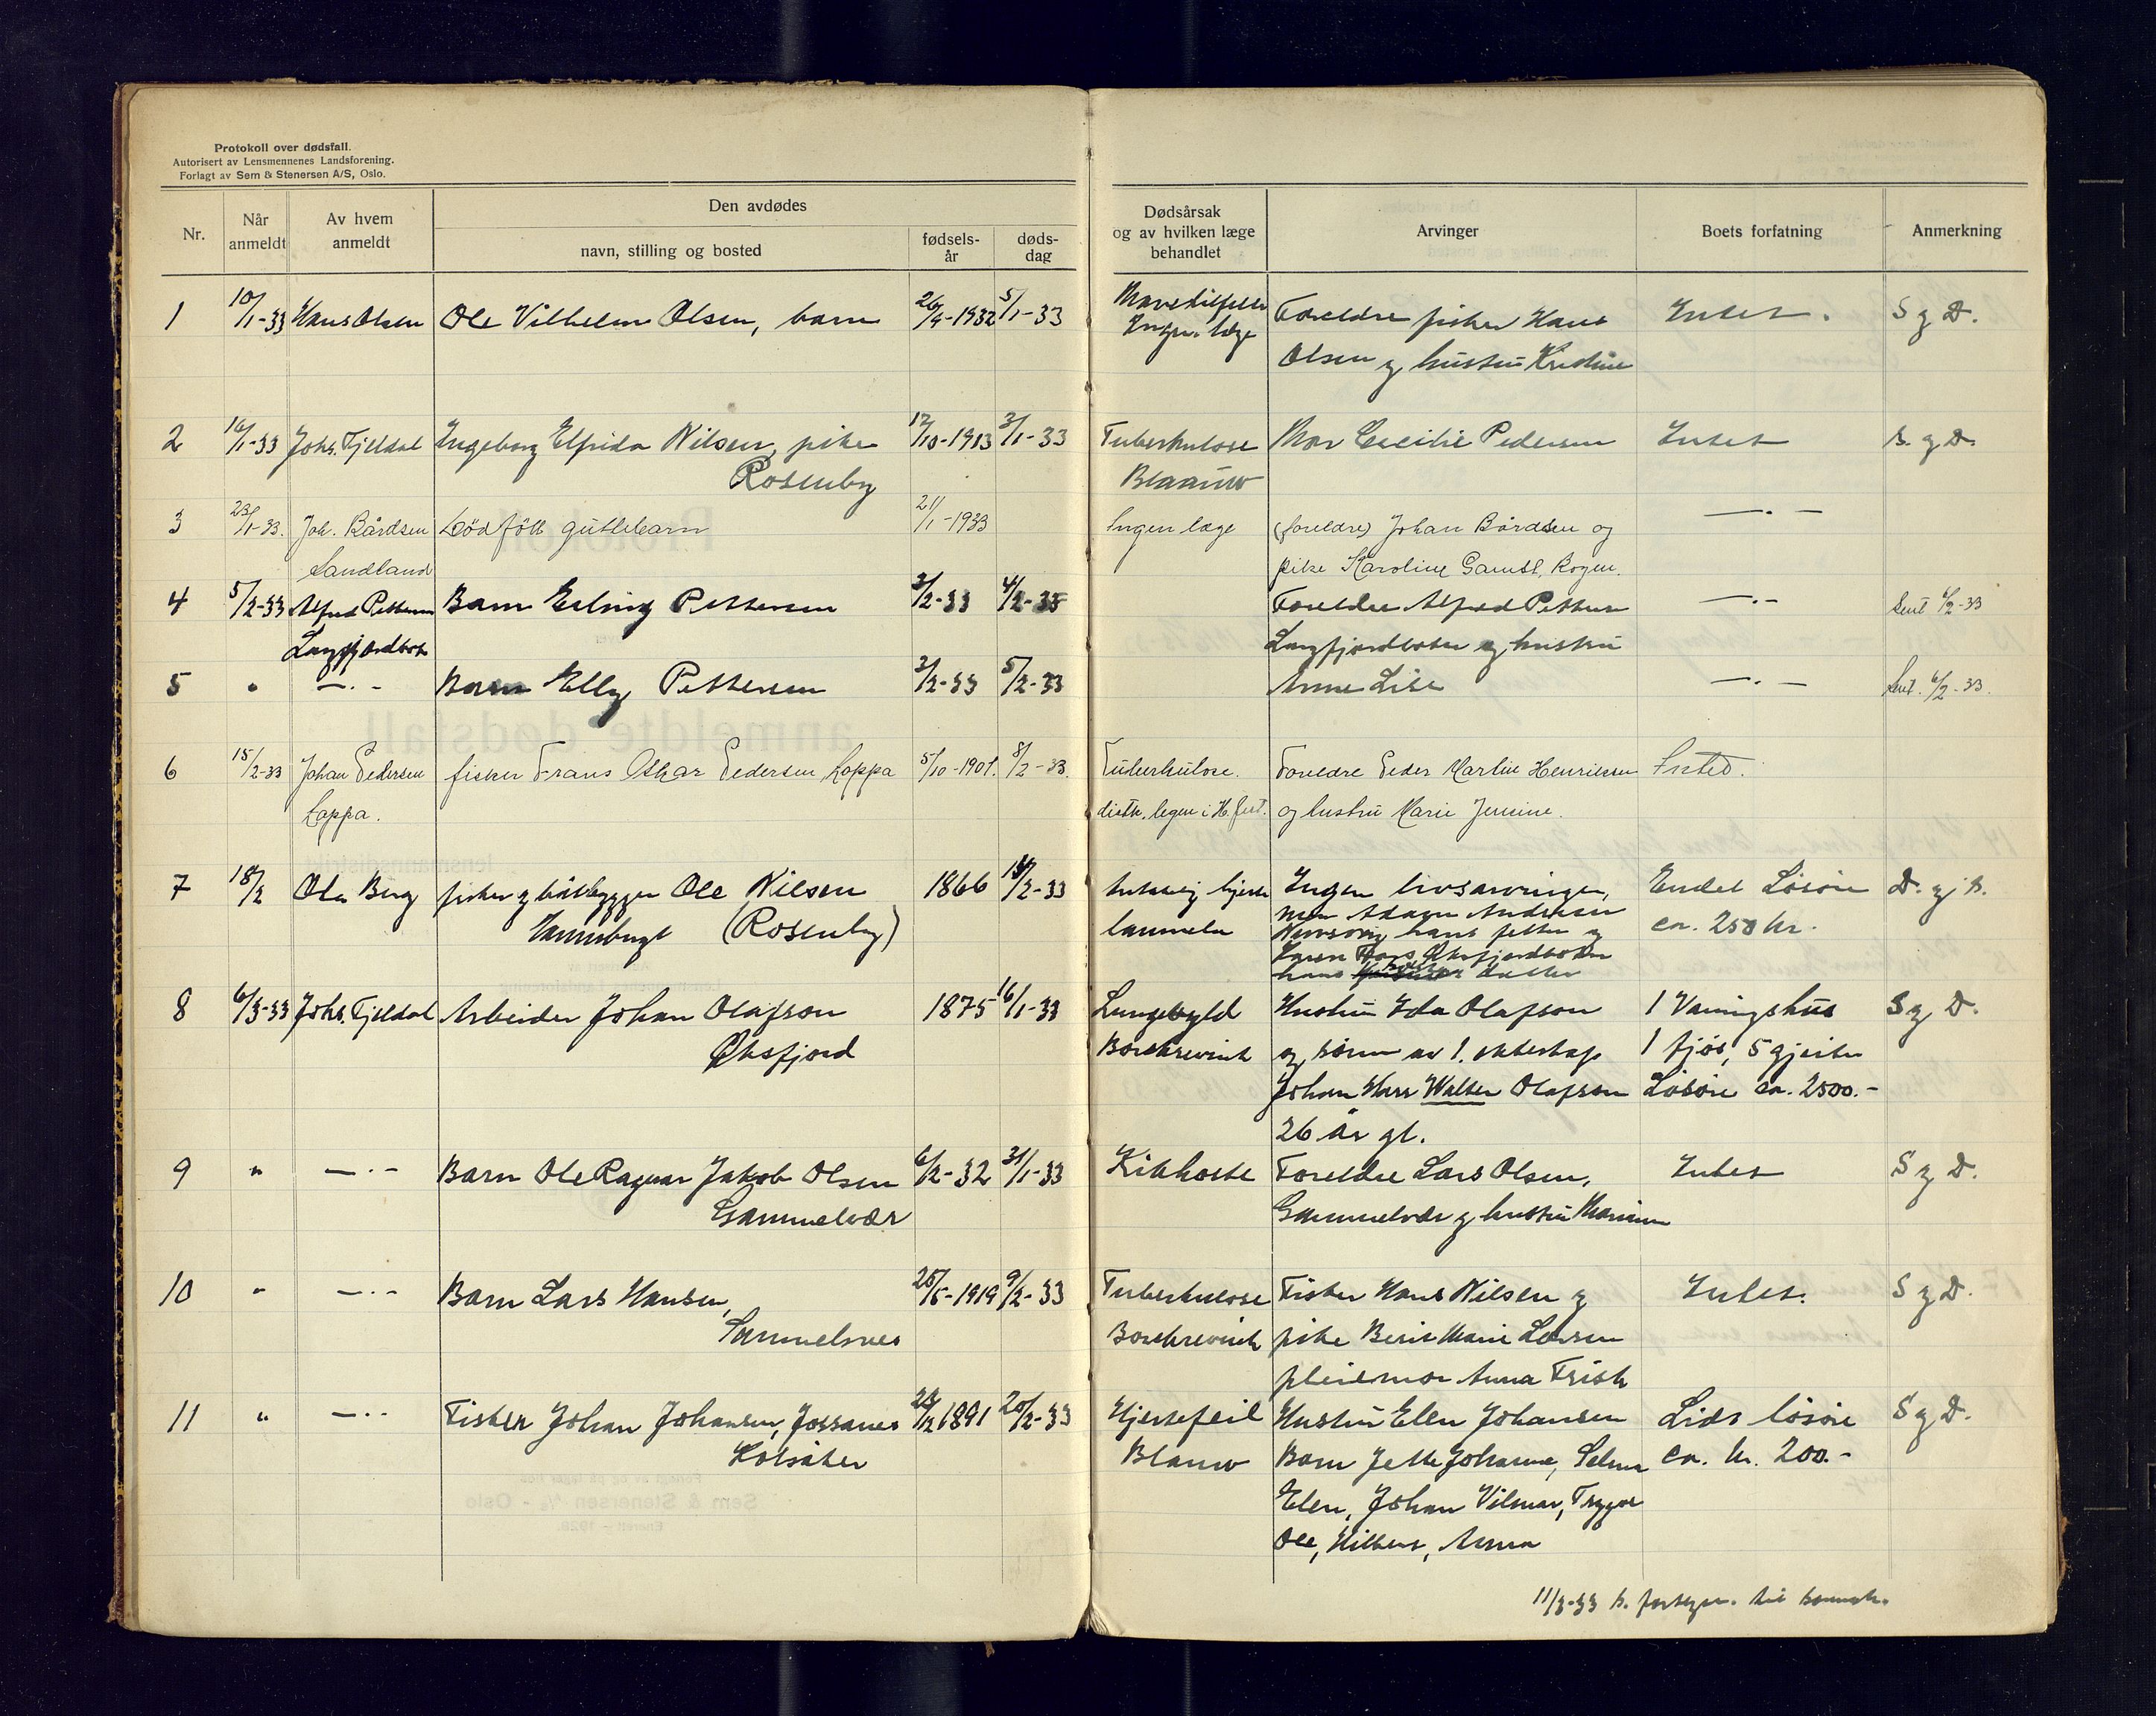 Protokoll over dødsfall.
Autorisert av Lensmennenes Landsforening.
Forlagt av Sem & Stenersen A/S, Oslo.
Nr.
Når anmeldt
Av hvem anmeldt
Den avdødes
navn, stilling og bosted
fødsels-år
døds-dag
Dødsårsak og av hvilken læge behandlet
Arvinger
Boets forfatning
Anmerkning
1 10/1-33 Hans Olsen Ole Vilhelm Olsen, barn 5/1-33 Foreldre fisker Hans Intet. S g D.
læge Olsen og hustru Kristine
2 16/1-33 Johs. Fjeldal Ingeborg Elfrida Nilsen, pike 17/10-1913 3/1-33 Tuberkulose Mor Cecilie Pedersen Intet S. g D.
Rosenby Blaauw
3 23/1-33. Joh. Bårdsen Dödfött guttebarn 21/1-1933 Ingen læge (foreldre) Johan Bårdsen og —·—
Sandland pike Karoline Gamst, Rogen.
4 5/2-33 Alfred Pettersen Barn Erling Pettersen 3/2-33 4/2-33 Foreldre Alfred Pettersen —·— Sent 6/2-33
Langfjordbotn Langfjordbotn og hustru
5 " —·- Barn Elly Pettersen 3/2-33 5/2-33 Anne Lise —·— Sent. 6/2-33.
6 15/2-33 Johan Pedersen fisker Frans Oskar Pedersen Loppa 5/10-1901. 8/2-33. Tuberkulose. Foreldre Peder Martin Henriksen Intet.
Loppa. distr. legen i H.fest. og hustru Marie Jensine.
7 18/2 Ole Berg fisker og båtbygger Ole Nilsen 1866 /2-33 hjerte Ingen livsarvinger, Endel Løsøre D. g S.
(Rosenby) lammelse men Adam Andersen ca. 250 kr.
hans fetter og
Øksfjordbotn
hans datter
8 6/3-33 Johs. Fjeldal Arbeider Johan Olafson 1875 16/1-33 Lungebyld Hustru Ida Olafson 1 Vaningshus S g D.
Øksfjord Borchrevink og sönn av 1. ekteskap 1 fjös, 5 gjeiter
Johan Hans Walter Olafson Løsøre ca. 2500.-
26 år gl.
9 " —·- Barn Ole Ragnar Jakob Olsen 6/2-32 31/1-33 Kikhoste Foreldre Lars Olsen, Intet S g D.
Gammelvær Gammelvær og hustru
10 " —·- Barn Lars Hansen, 25/5-1919 9/2-33 Tuberkulose Fisker Hans Nilsen og Intet. S g D.
Borchrevink pike Berit Marie Larsen
pleiemor Anna Frisk
11 " —·- Fisker Johan Johansen, 1891 20/2-33 Hjertefeil Hustru Elen Johansen Lidt løsøre S g D.
Blauw Barn Jette Johanne, Selma ca. kr. 200.-
Elen, Johan Vilmar, Trygve
Ole, Hilbert, Anna
11/3-33 S. til